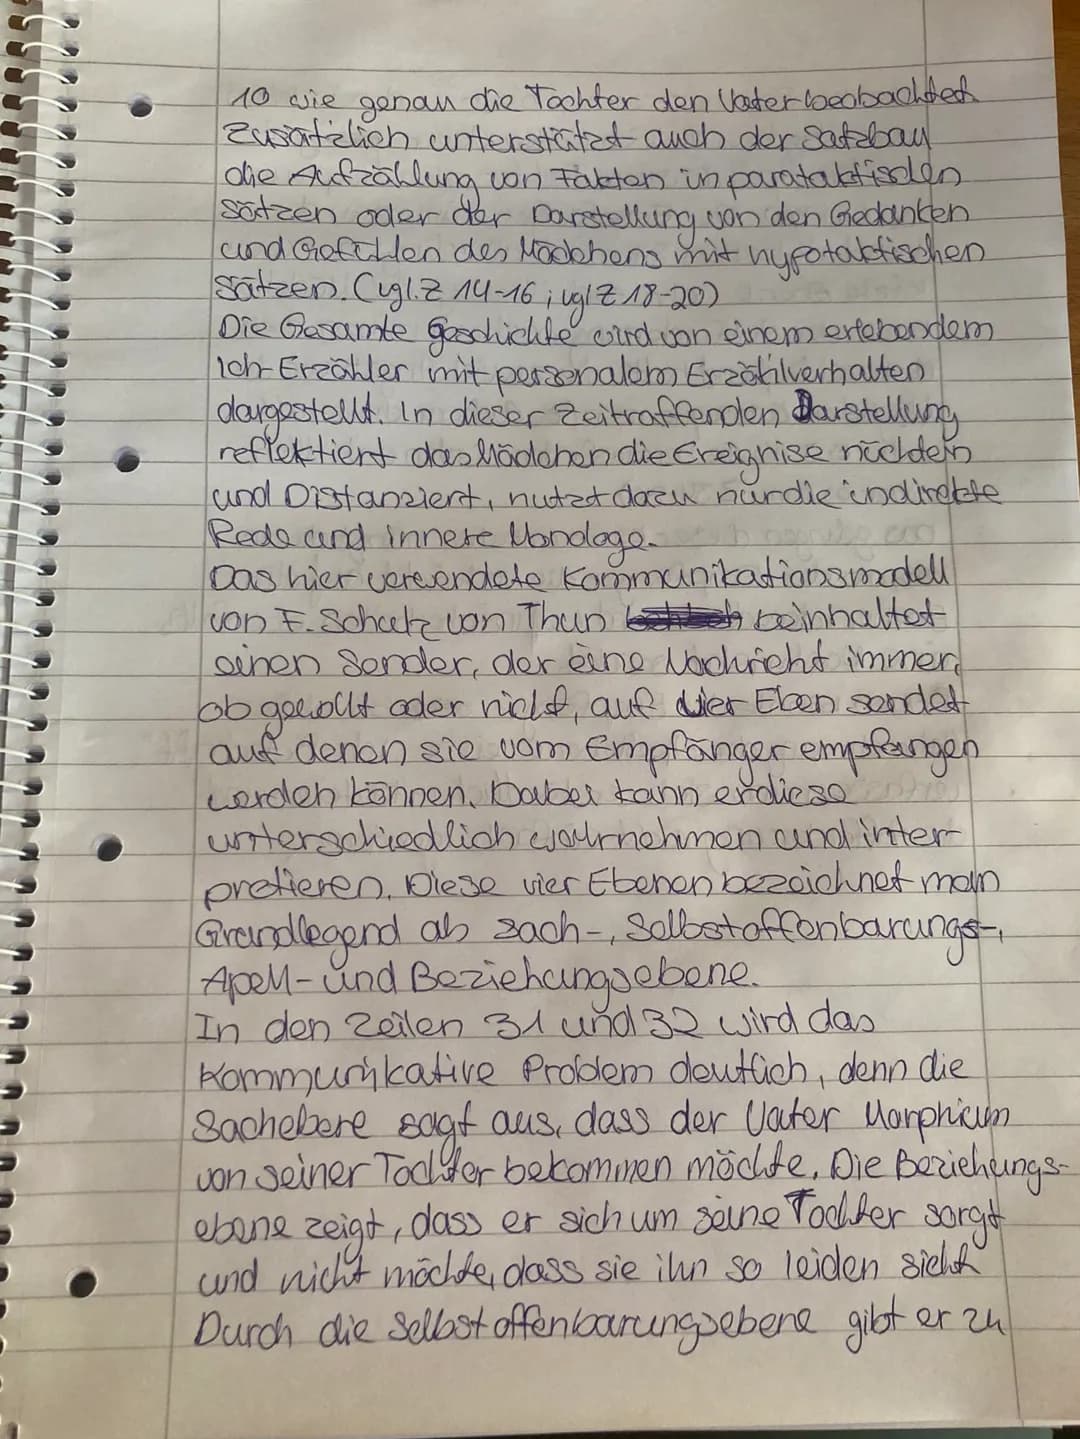 10 wie genau die Tochter den Vater beobachtet.
Zusätzlich unterstützt auch der Satzbau
die Aufzählung von Fakten in parataktischen
Sätzen oder der Darstellung von den Gedanken
und Gefühlen des Mädchens mit hypotaktischen
Sätzen. (vgl. Z 14-16; vgl Z 18-20)
Die Gesamte Geschichte wird von einem erlebendem
Ich-Erzähler mit personalem Erzählverhalten
dargestellt. In dieser Zeitraffenden Darstellung
reflektiert das Mädchen die Ereignise nüchtern
und Distanziert, nutzt dazu nur die indirekte
Rede und innere Monologe.
Das hier verwendete Kommunikationsmodell
von F. Schulz von Thun beinhaltet
einen Sender, der eine Nachricht immer,
ob gewollt oder nicht, auf vier Eben sendet
auf denen sie vom Empfänger empfangen
werden können. Dabei kann er diese
unterschiedlich wahrnehmen und inter-
pretieren. Diese vier Ebenen bezeichnet man
Grundlegend als Sach-, Selbstoffenbarungs-,
Apell- und Beziehungsebene.
In den Zeilen 31 und 32 wird das
Kommunikative Problem deutlich, denn die
Sachebene sagt aus, dass der Vater Morphium
von seiner Tochter bekommen möchte. Die Beziehungs-
ebene zeigt, dass er sich um seine Tochter sorgt
und nicht möchte, dass sie ihn so leiden sieht
Durch die Selbstoffenbarungsebene gibt er zu